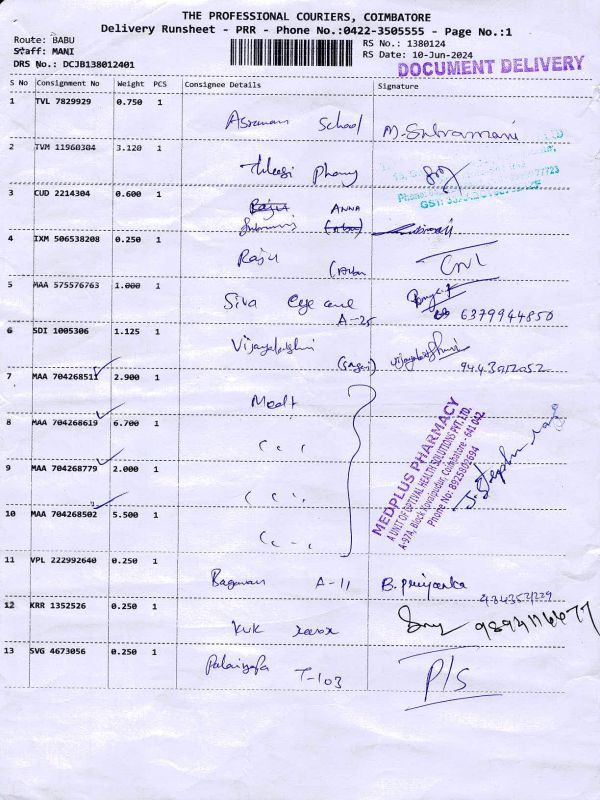 THE PROFESSIONAL COURIERS, COIMBATORE
Delivery Runsheet - PRR - Phone No.:0422-3505555 - Page No.:1
Route: BABU
Staff: MANI
DRS No.: DCJB138012401
RS No.: 1380124
RS Date: 10-Jun-2024
DOCUMENT DELIVERY
S No Consignment No Weight PCS Consignee Details Signature
1 TVL 7829929 0.750 1 School M. Subramani
2 TVM 11960304 3.120 1
3 CUD 2214304 0.600 1 Raju ANNA
4 IXM 506538208 0.250 1 Raju
5 MAA 575576763 1.000 1 Siva eye care A-25 6379944850
6 SDI 1005306 1.125 1 Vijayalakshmi
7 MAA 704268511 2.900 1 Medt
8 MAA 704268619 6.700 1
9 MAA 704268779 2.000 1
10 MAA 704268502 5.500 1
MEDPLUS PHARMACY
A UNIT OF OPTIVAL HEALTH SOLUTIONS PVT LTD.
Coimbatore - 641 042.
Phone No: 8925802694
11 VPL 222992640 0.250 1 Bagavan A-11 B. Priyanka
12 KRR 1352526 0.250 1 KUK xerox
13 SVG 4673056 0.250 1 T-103 P/S